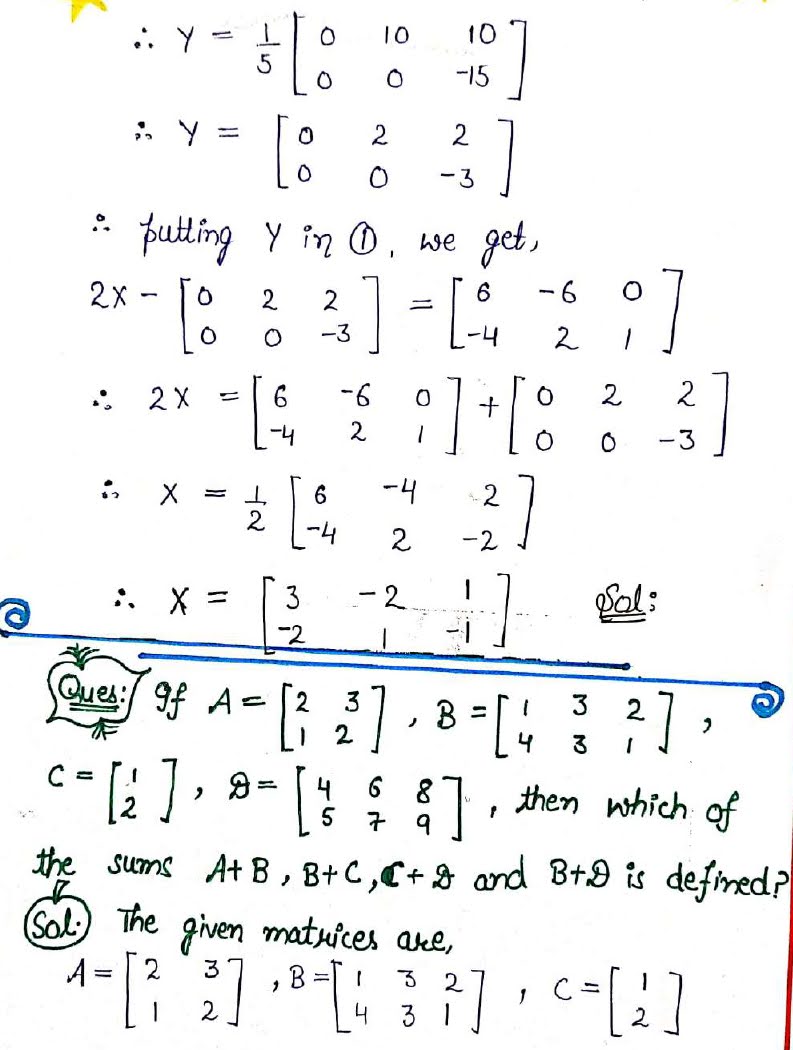 ∴ Y = 1/5 [ 0 10 10
0 0 -15 ]
∴ Y = [ 0 2 2
0 0 -3 ]
∴ putting Y in ①, we get,
2X - [ 0 2 2 ] = [ 6 -6 0 ]
[ 0 0 -3 ] [ -4 2 1 ]
∴ 2X = [ 6 -6 0 ] + [ 0 2 2 ]
[ -4 2 1 ] [ 0 0 -3 ]
∴ X = 1/2 [ 6 -4 2
-4 2 -2 ]
∴ X = [ 3 -2 1 ] Sol:
[ -2 1 -1 ]
Ques: If A = [ 2 3 ], B = [ 1 3 2 ],
[ 1 2 ] [ 4 3 1 ]
C = [ 1 ], D = [ 4 6 8 ], then which of
[ 2 ] [ 5 7 9 ]
the sums A+B, B+C, C+D and B+D is defined?
Sol. The given matrices are,
A = [ 2 3 ], B = [ 1 3 2 ], C = [ 1 ]
[ 1 2 ] [ 4 3 1 ] [ 2 ]